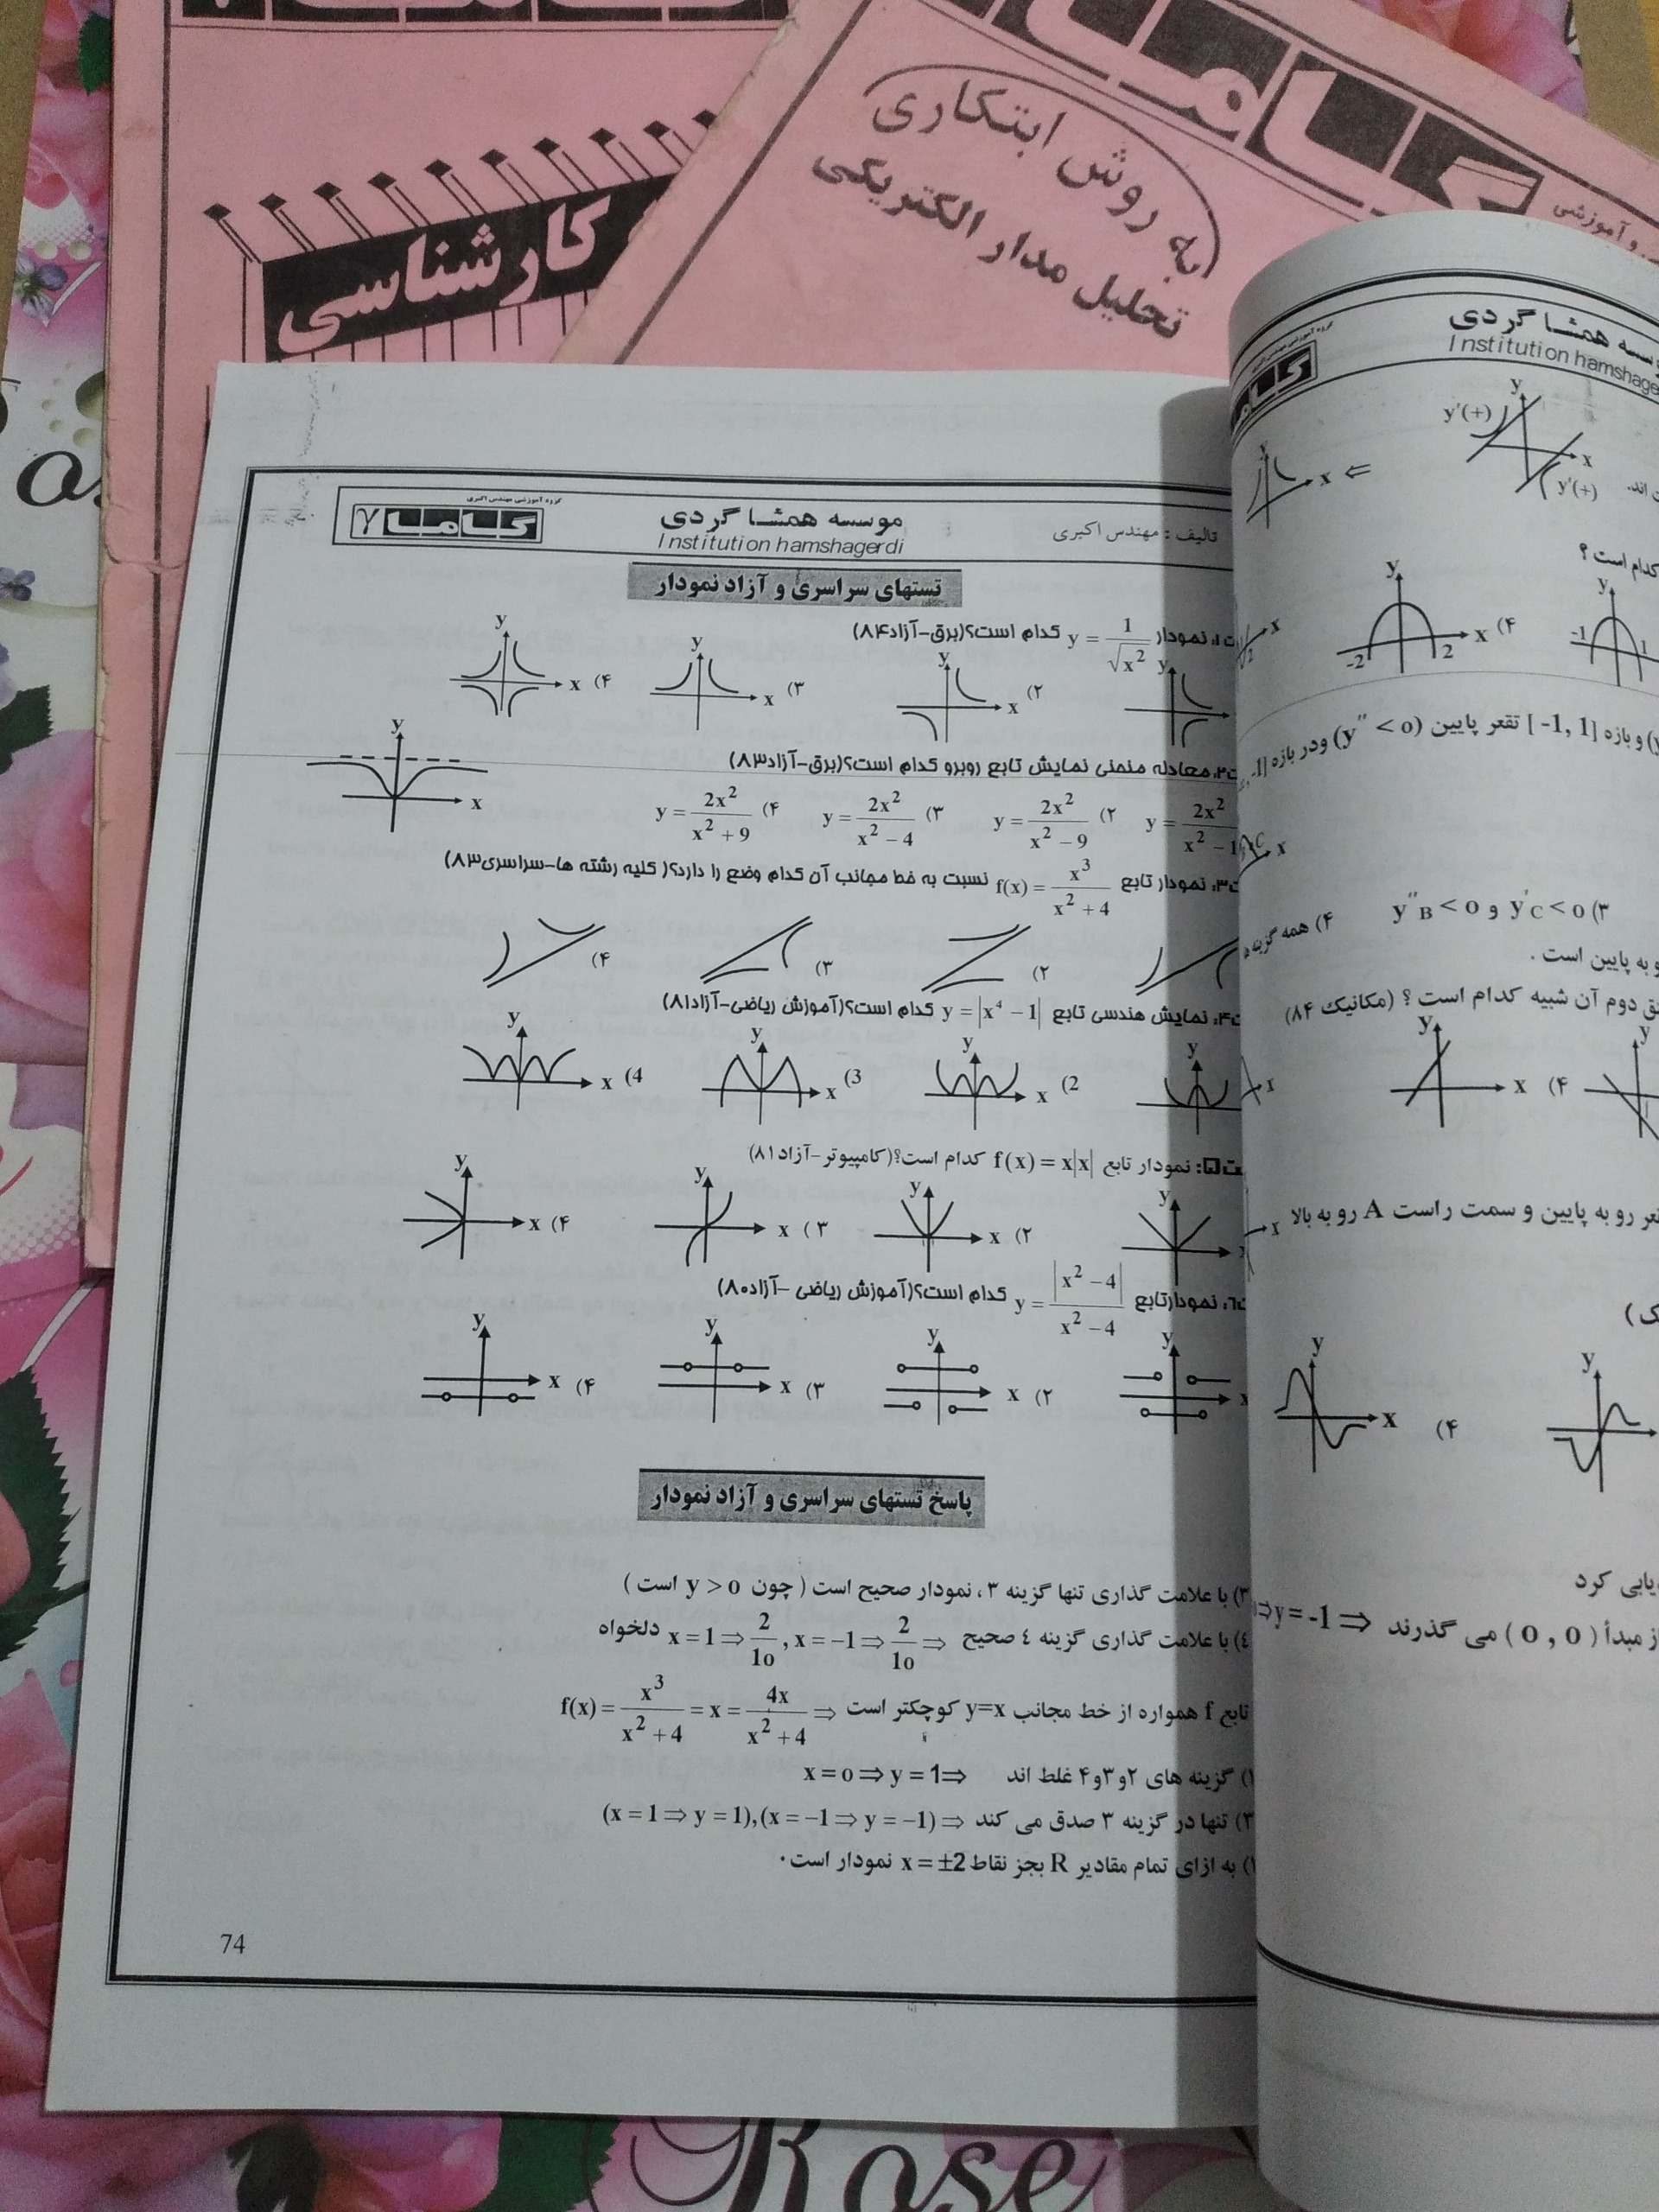 کارشناسی
به روش ابتکاری
تحلیل مدار الکتریکی
و آموزشی
گروه آموزشی مهندس اکبری
گاما ۷
موسسه همشاگردی
Institution hamshagerdi
تالیف : مهندس اکبری
تستهای سراسری و آزاد نمودار
نمودار y = 1/√x² کدام است؟(برق-آزاد۸۴)
y y y y
x (۴ x (۳ x (۲
معادله منحنی نمایش تابع روبرو کدام است؟(برق-آزاد۸۳)
y
x
y = 2x²/(x² − 1 (۲ y = 2x²/(x² − 9) (۳ y = 2x²/(x² − 4) (۴ y = 2x²/(x² + 9)
نمودار تابع f(x) = x³/(x² + 4) نسبت به خط مجانب آن کدام وضع را دارد؟( کلیه رشته ها-سراسری۸۳)
(۲ (۳ (۴
نمایش هندسی تابع y = |x⁴ − 1| کدام است؟(آموزش ریاضی-آزاد۸۱)
y y y y
x (2 x (3 x (4
نمودار تابع f(x) = x|x| کدام است؟(کامپیوتر-آزاد۸۱)
y y y y
x (۲ x (۳ x (۴
نمودارتابع y = |x² − 4|/(x² − 4) کدام است؟(آموزش ریاضی -آزاد۸۰)
y y y y
x (۲ x (۳ x (۴
پاسخ تستهای سراسری و آزاد نمودار
۳) با علامت گذاری تنها گزینه ۳ ، نمودار صحیح است ( چون y > o است )
٤) با علامت گذاری گزینه ٤ صحیح ⇐ x = 1 ⇒ 2/1o , x = −1 ⇒ 2/1o ⇒ دلخواه
تابع f همواره از خط مجانب y=x کوچکتر است ⇒ f(x) = x³/(x² + 4) = x = 4x/(x² + 4)
۱) گزینه های ۲و۳و۴ غلط اند x = o ⇒ y = 1⇒
۳) تنها در گزینه ۳ صدق می کند (x = 1 ⇒ y = 1),(x = −1 ⇒ y = −1) ⇒
۱) به ازای تمام مقادیر R بجز نقاط x = ±2 نمودار است.
74
موسسه همشاگردی
Institution hamshage
y y'(+)
x ⇐ x
y'(+)
کدام است ؟
y y
-2 2 x (۴ -1 1
و بازه [1 ,1-] تقعر پایین (y'' < o) ودر بازه
y''B < o و y'C < o (۳
۴) همه گزینه
و به پایین است .
دوم آن شبیه کدام است ؟ (مکانیک ۸۴)
y y
x (۴
رو به پایین و سمت راست A رو به بالا
y y
x (۴
یابی کرد
از مبدأ ( o , o ) می گذرند ⇒ y = -1 ⇒
Rose